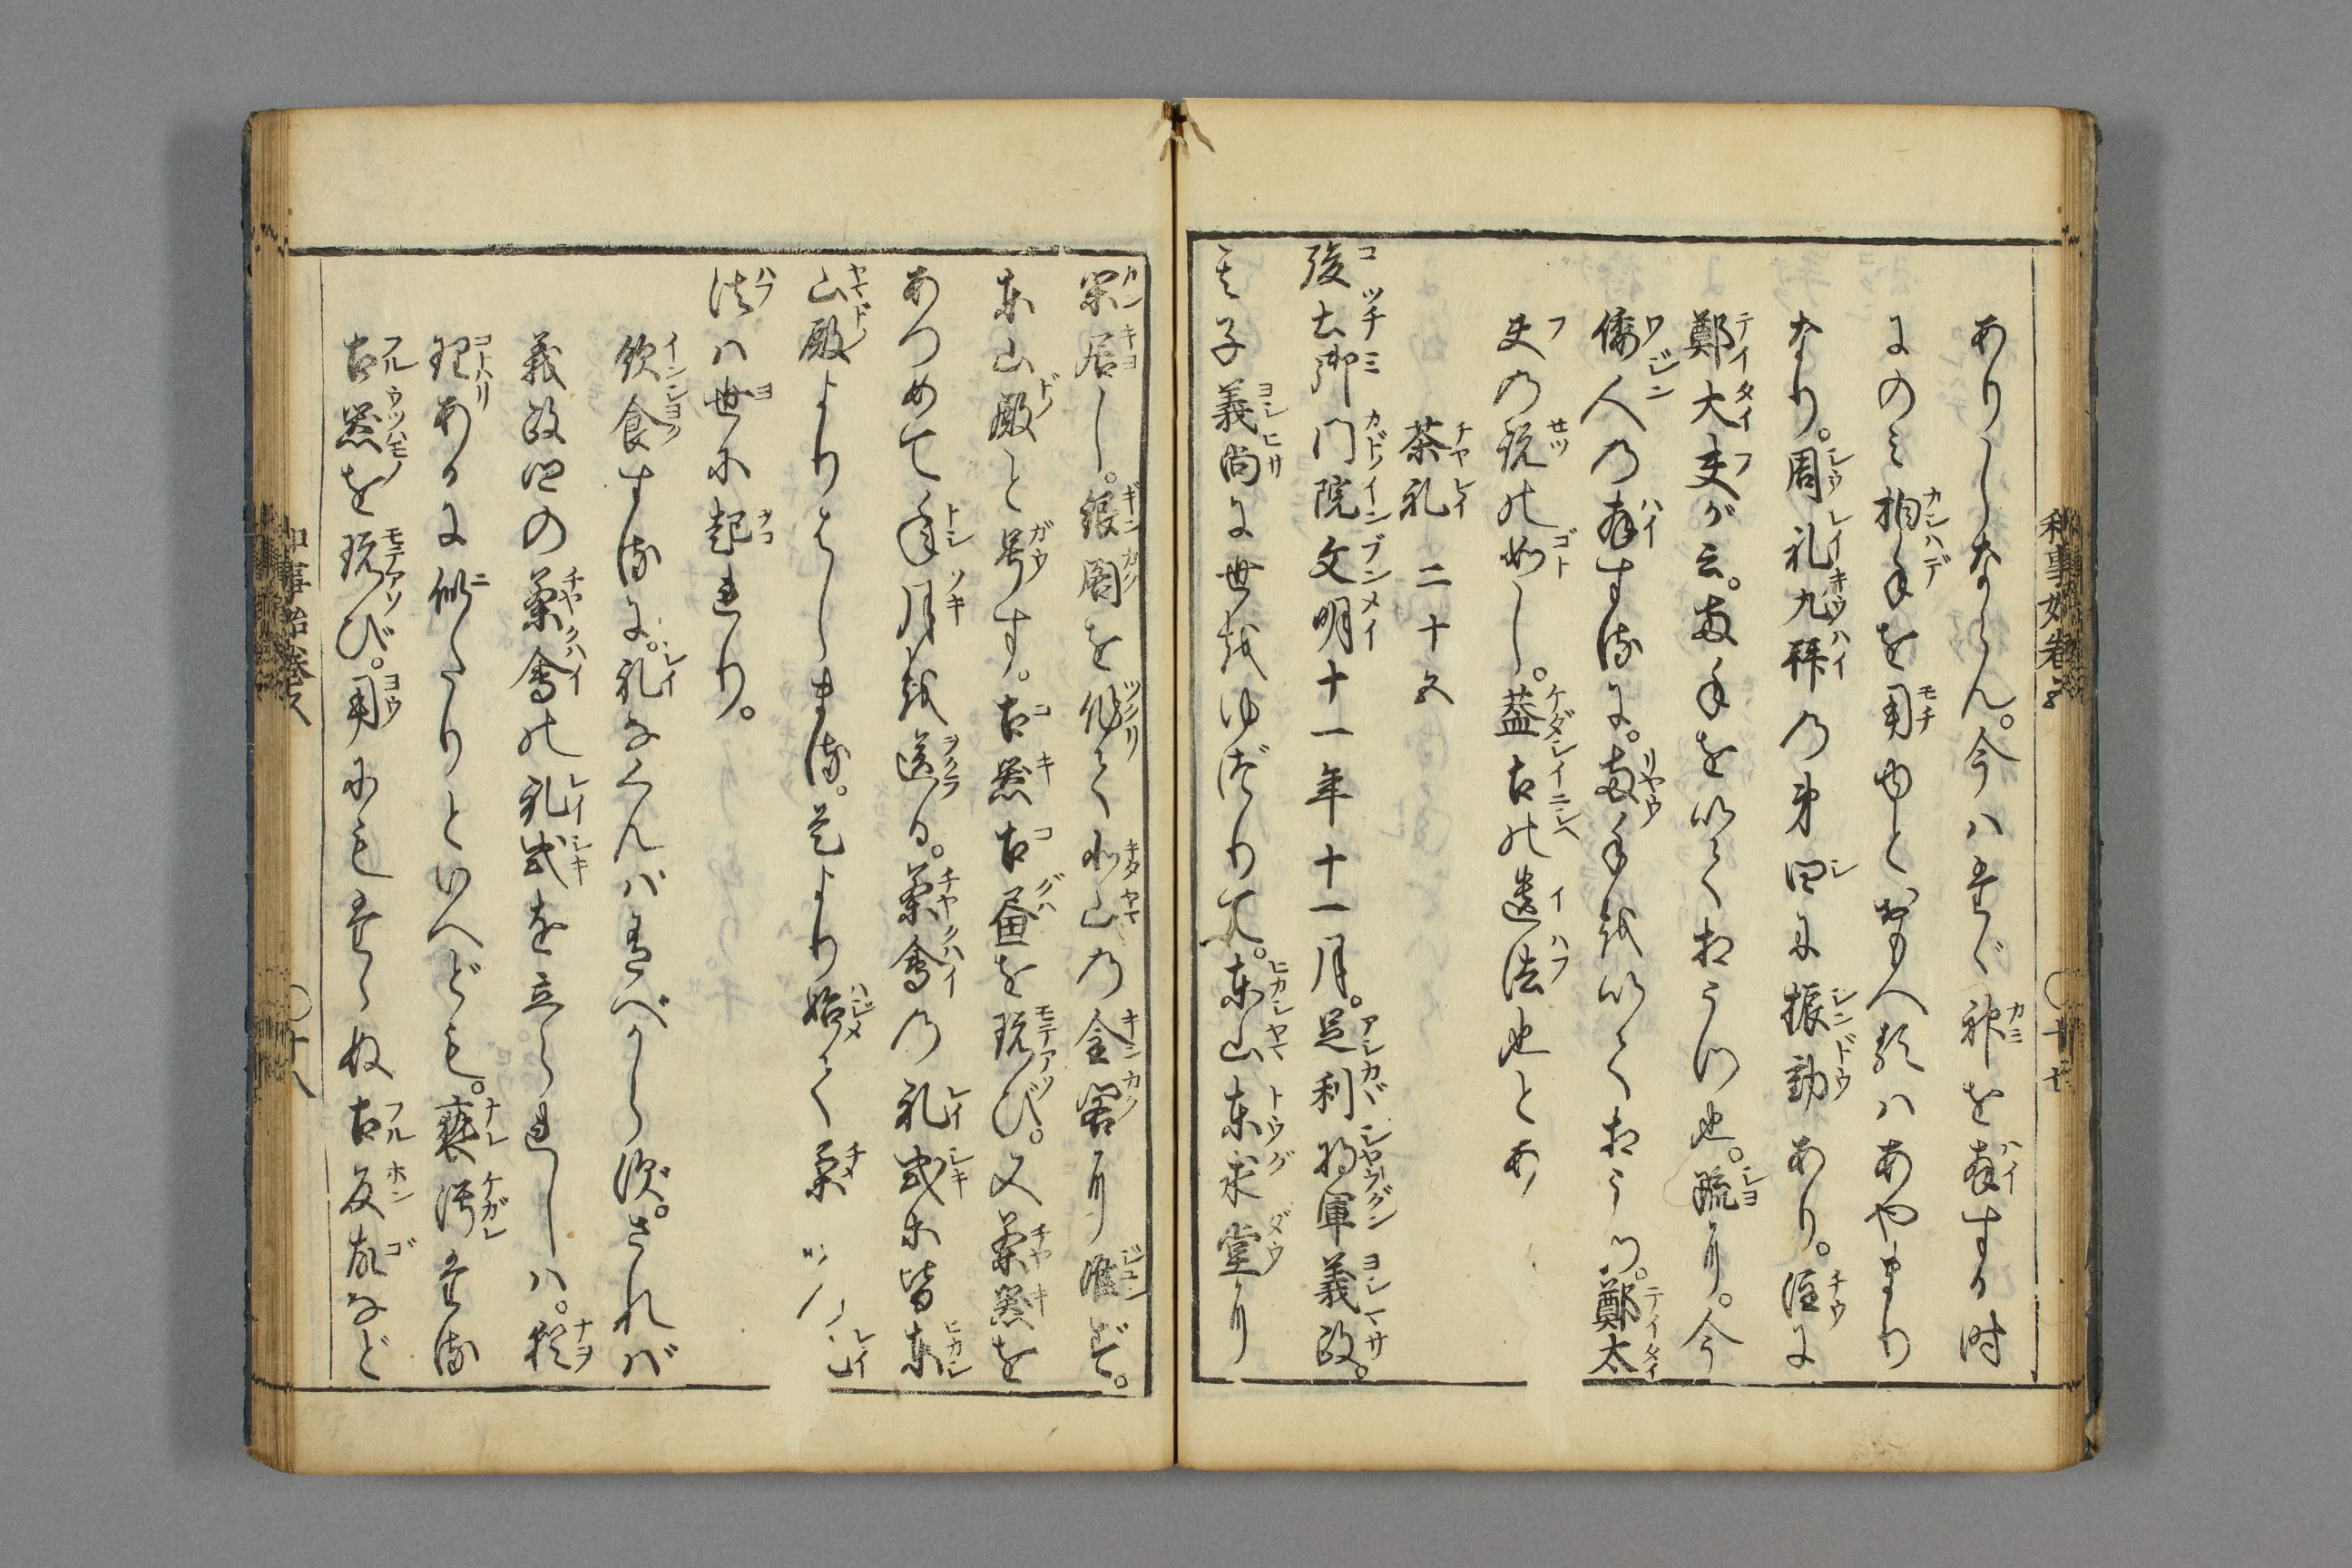 ありしならん。今ハたゞ神を拜する時
にのミ拍手を用ゆとおもへ類ハあやまり
なり。周礼九拜の第四に振動あり。注に
鄭大夫が云。両手を以て相うつ也。疏に。今
倭人の拜するに。両手を以て相うつ。鄭大
夫の説の如し。蓋古の遺法也とあ
茶礼 二十五
後土御門院文明十一年十一月。足利将軍義政。
其子義尚に世をゆづりて。東山東求堂に
閑居し。銀閣を作て北山の金閣に准ず。
東山殿と号す。古器古画を玩び。又茶器を
あつめて年月を送る。茶会の礼式ホ皆東
山殿よりはしまる。是より始て茶
礼
法ハ世に起れり。
飲食するに。礼なくんバ有べからず。されバ
義政四の茶会の礼式を立られしハ。猶
理あるに似たりといへども。褻汚たる
古器を玩び。用にもたゝぬ古反故など
和事始巻五
〇十七
和事始巻五
〇十八